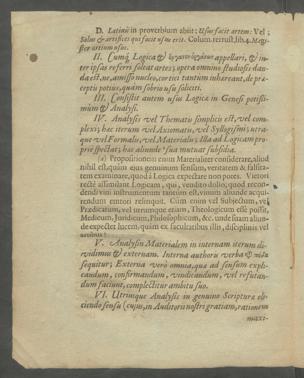 D. Latinū in proverbium abiit: Usus facit artem: Vel;
Solus & artifices qui facit usus erit. Colum. rei rust. lib. 4. Magi-
ster artium usus.
II. Cumq́; Logica & ὄργανον ὀργάνων appellari, & in-
ter ipsas referri soleat artes; opera omnino studiosis dan-
da est, ne, amisso nucleo, cortici tantum inhæreant, de præ-
ceptis potius, quam sobrio usu soliciti.
III. Consistit autem usus Logicæ in Genesi potissi-
mum & Analysi.
IV. Analysis vel Thematis simplicis est, vel com-
plexi; hæc iterum vel Axiomatis, vel Syllogismi; utra-
que vel Formalis, vel Materialis; Illa ad Logicam pro-
priè spectat; hac aliunde sua mutuat subsidia.
(a) Propositionem enim Materialiter considerare, aliud
nihil est, quàm ejus genuinum sensum, veritatem & falsita-
tem examinare, quod à Logica expectare non potes. Vietori
rectè assimilant Logicam, qui, vendito dolio, quod recon-
dendi vini instrumentum tantum est, vinum aliunde acqui-
rendum emtori relinquit. Cum enim vel Subjectum, vel
Prædicatum, vel utrumque etiam, Theologicum esse possit,
Medicum, Juridicum, Philosophicum, &c. unde suam aliun-
de expectet lucem, quàm ex facultatibus illis, disciplinis vel
artibus?
V. Analysin Materialem in internam iterum di-
vidimus & externam. Interna authoris verba &
sequitur; Externa verò omnia, quæ ad sensum expli-
candum, confirmandum, vindicandum, vel refutan-
dum faciunt, complectitur ambitu suo.
VI. Utriusque Analysis in genuino Scripturæ eli-
ciendo sensu (cujus, in Auditorii nostri gratiam, rationem
maxi-